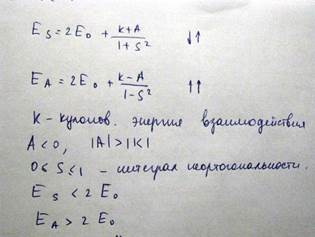 E_S = 2E_0 + \frac{K+A}{1+S^2} ↓↑
E_A = 2E_0 + \frac{K-A}{1-S^2} ↑↑
K - кулонов. энергия взаимодействия
A < 0, |A| > |K|
0 ≤ S ≤ 1 - интеграл неортогональности.
E_S < 2E_0
E_A > 2E_0